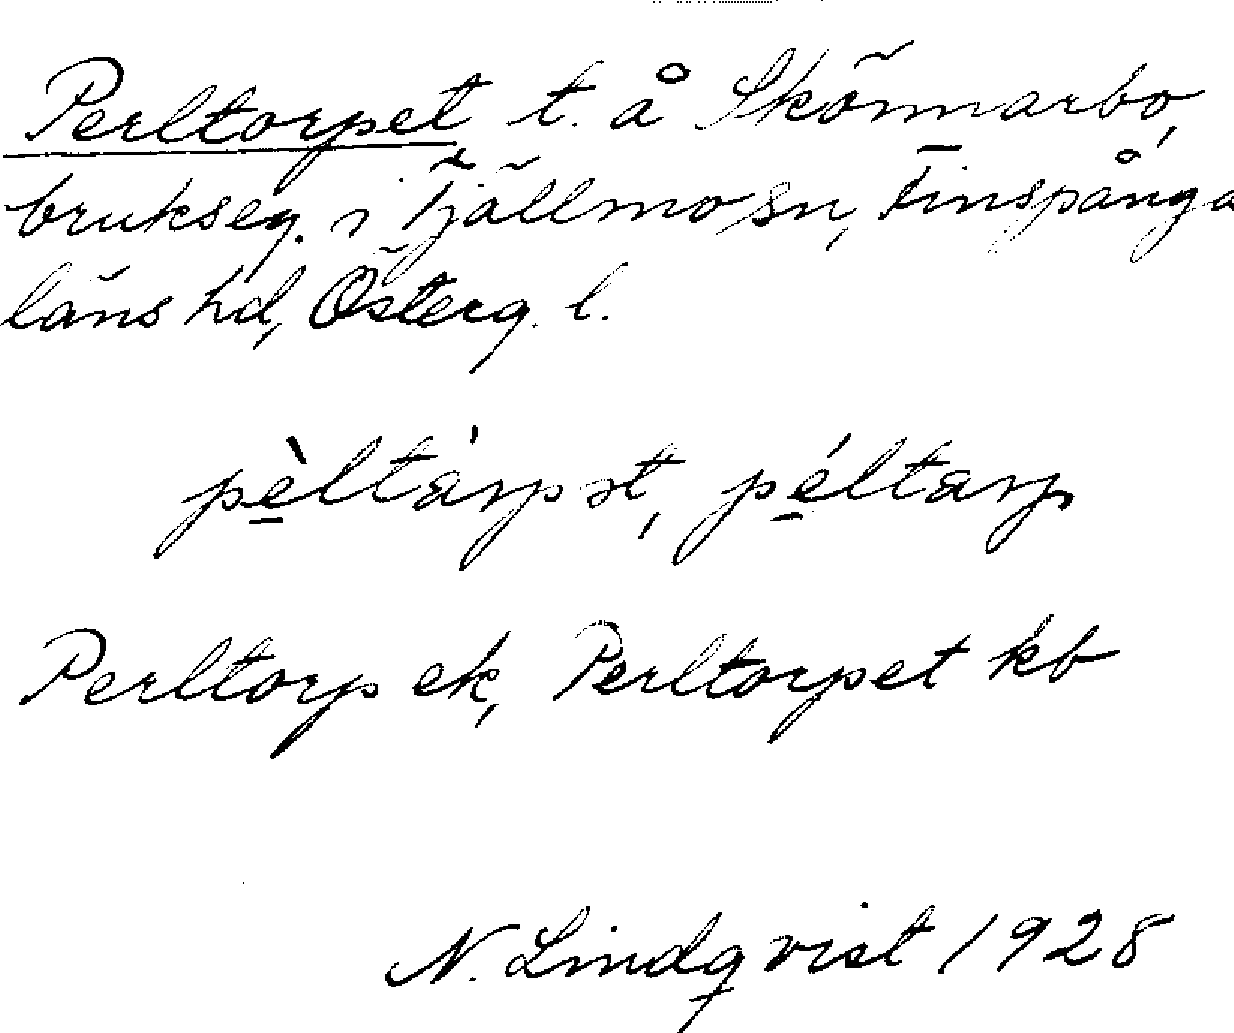 Perltorpet t. å Skönnarbo,
brukseg. i Tjällmo sn, Finspånga
läns hd, Österg. l.
pèltàrpət, péltarp
Perltorp ek, Perltorpet kb
N. Lindqvist 1928